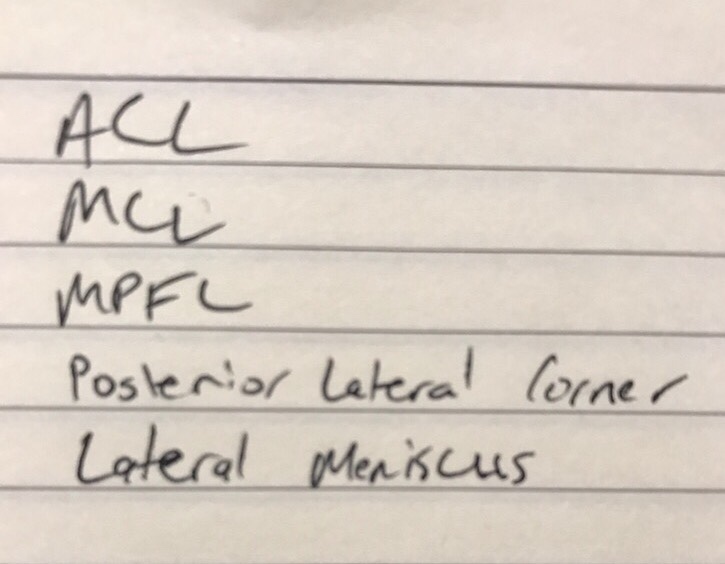 ACL
MCL
MPFL
Posterior Lateral Corner
Lateral Meniscus